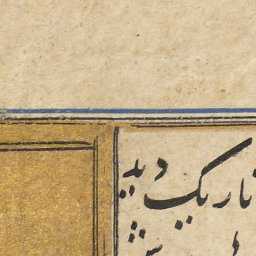 تاریک دید